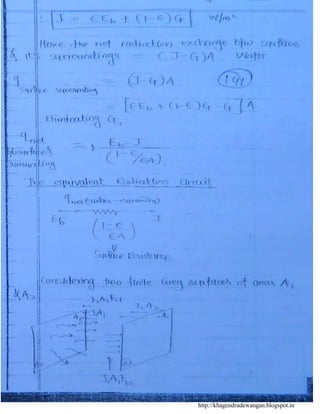 ∴ J = ЄE_b + (1-Є)G W/m²
Hence the net radiation exchange b/w surface
& it's surroundings = (J-G)A Watts
q surface surrounding = (J-G)A
= [ЄE_b + (1-Є)G - G] A
Eliminating G,
q net b/w surface & surrounding = E_b - J / (1-Є/ЄA).
The equivalent Radiation Circuit
q net (surface - surrounding)
E_b J
(1-Є / ЄA)
Surface Resistance.
Considering two finite Grey surfaces of areas A₁
& A₂
J₂A₂
J₁A₁
A₁
http://khagendradewangan.blogspot.in